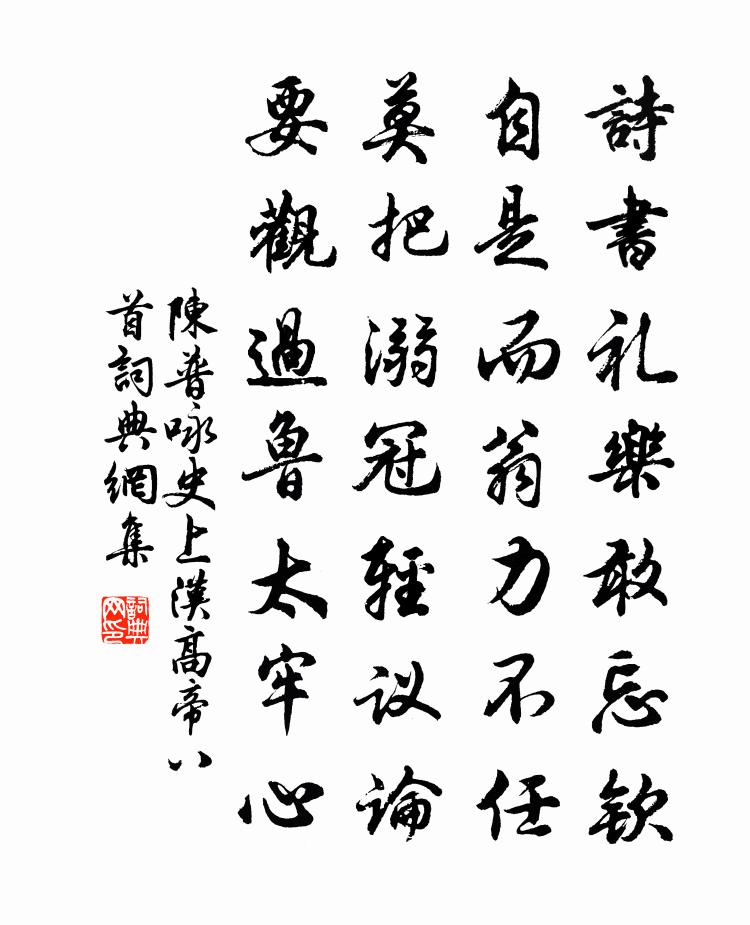 詩書礼樂敢忘欽
自是而翁力不任
莫把溺冠輕议論
要觀過魯太牢心
陳普咏史上漢高帝八
首詞典網集
詞典网印